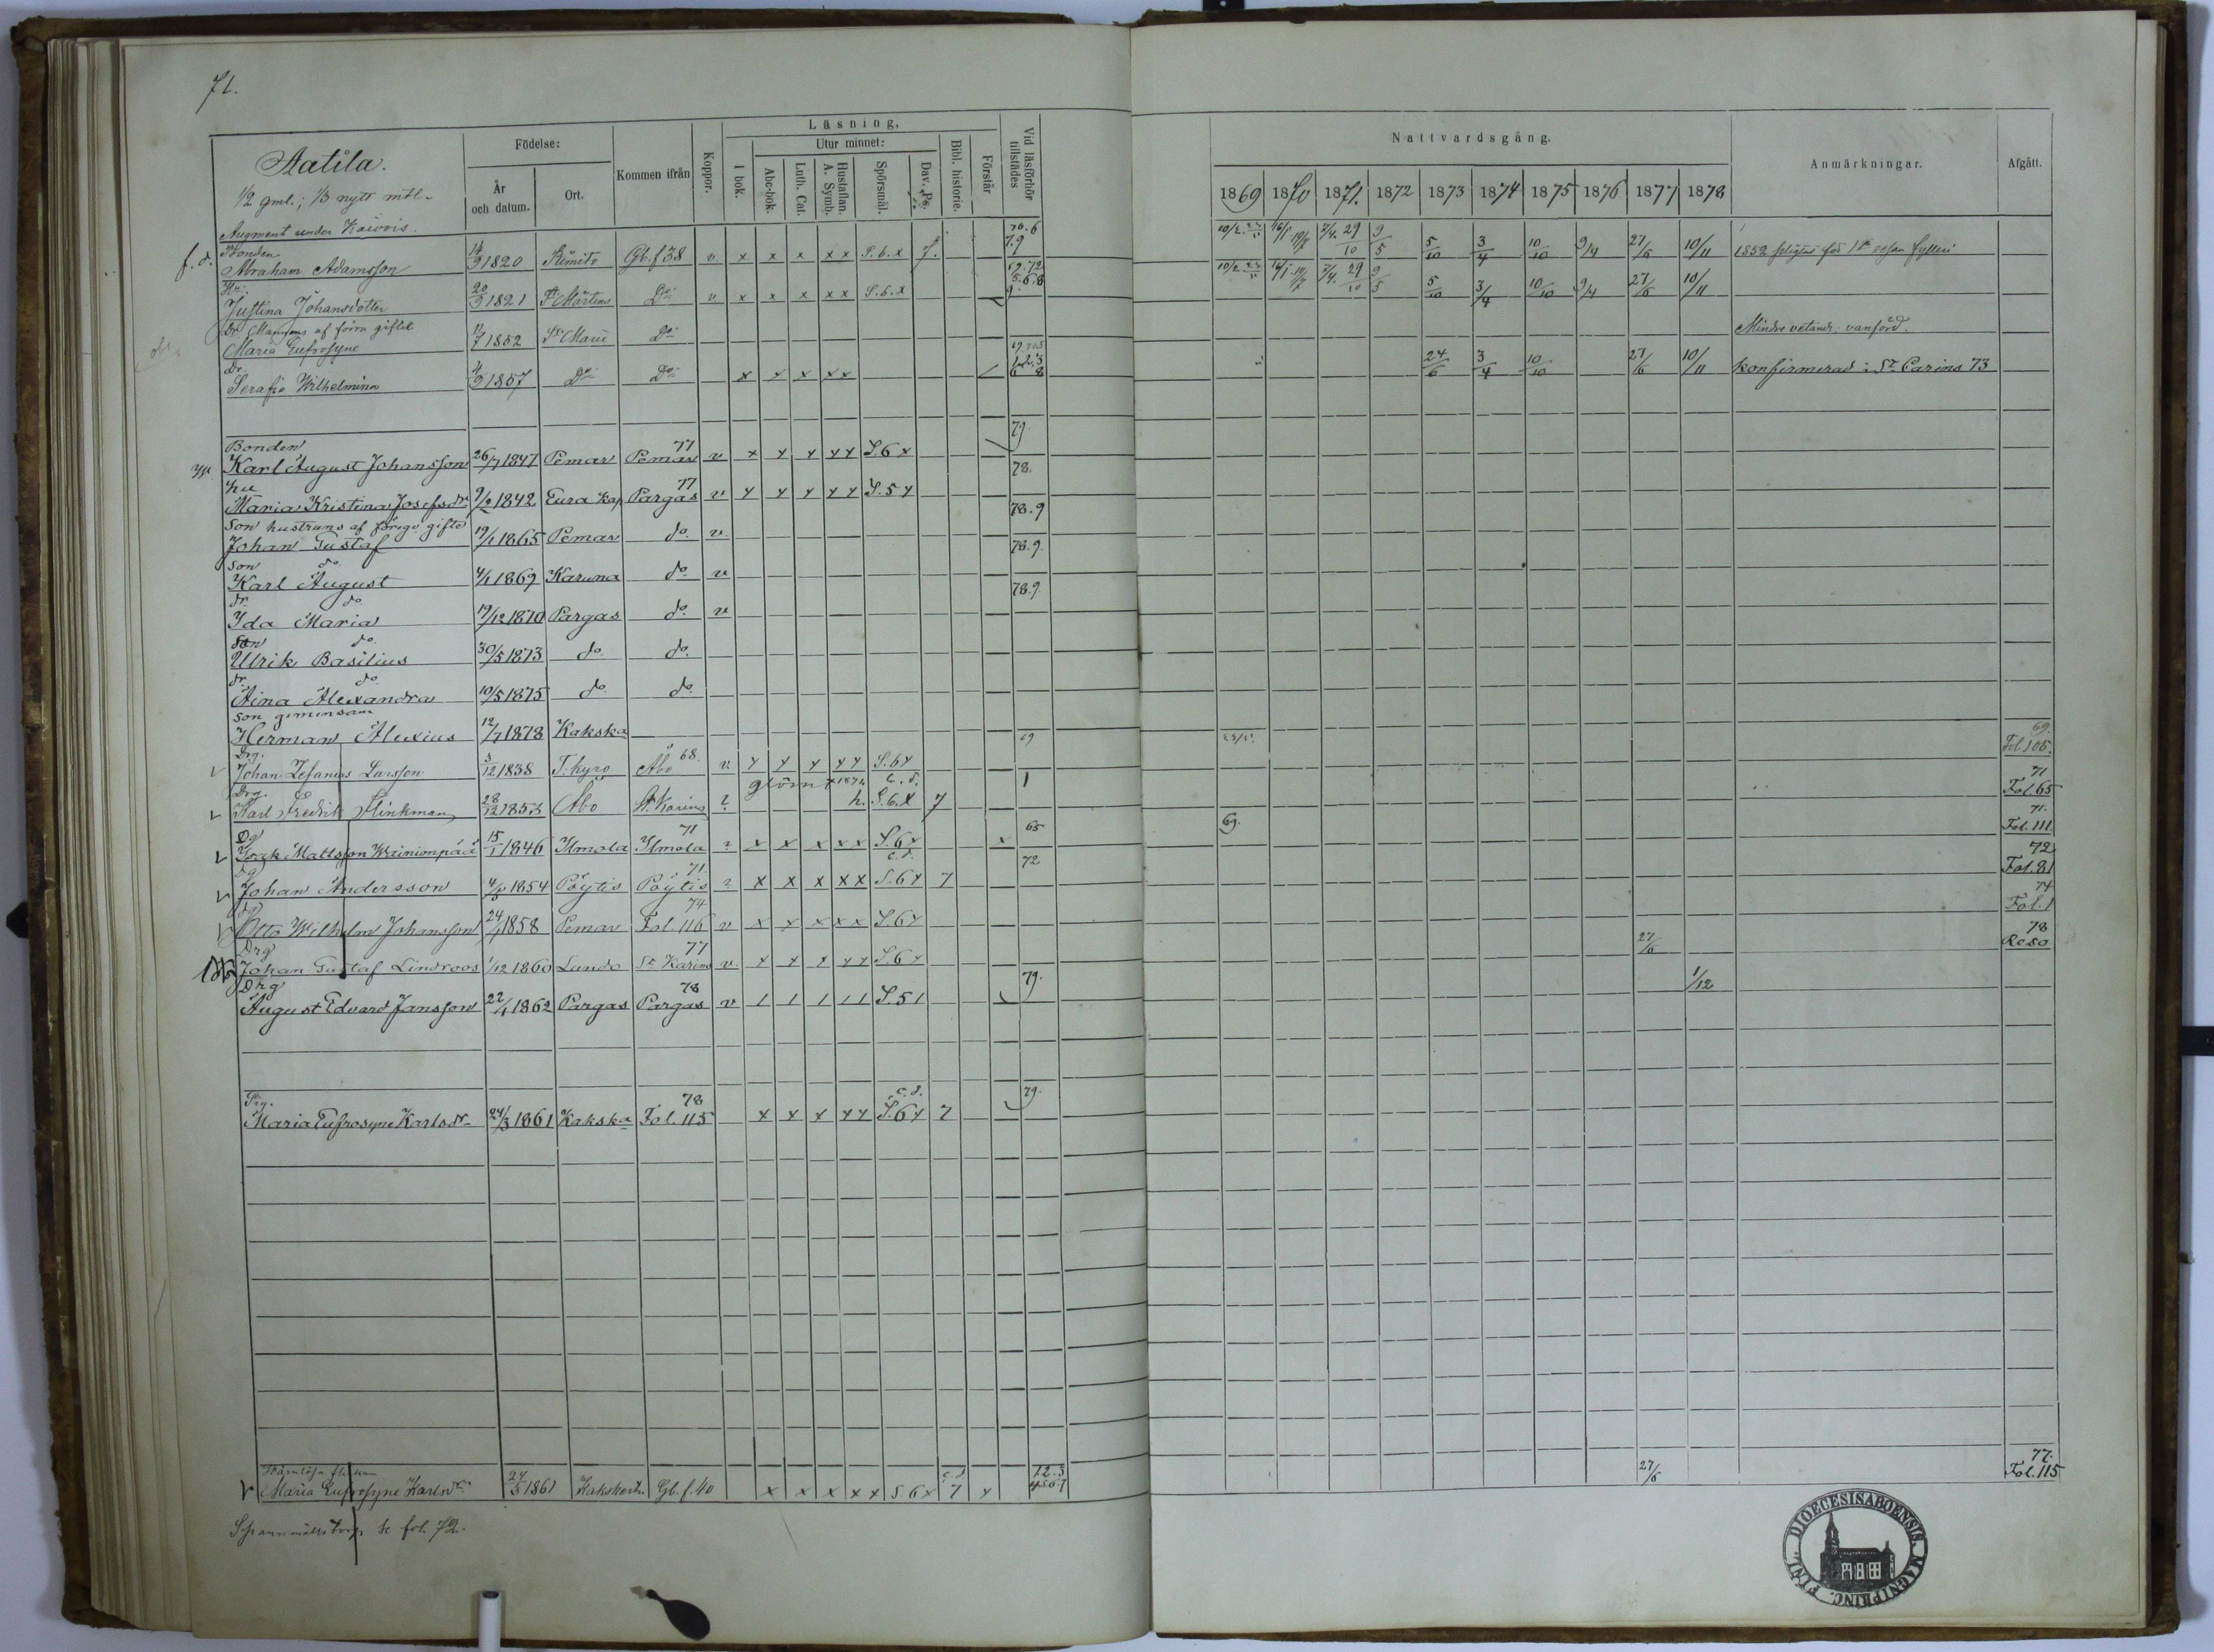 71.
Aatila.
1/2 gml.; 1/3 nytt mtl.
Augment under Kaivois.
Födelse:
År och datum.
Ort.
Kommen ifrån
Koppor.
Läsning,
I bok.
Utur minnet:
Abc-bok.
Luth. Cat.
Hustaflan. A. Symb.
Spörsmål.
Dav. Ps.
Bibl. historie.
Förstår
Vid läsförhör tillstädes
Nattvardsgång.
1869 1870 1871. 1872 1873 1874 1875 1876 1877 1878
Anmärkningar.
Afgått.
f. d. Bonden 70.6
Abraham Adamsson 14/9 1820 Kimito Gb. f 38 v. x x x x x S.6.x 7. 79 5/10 3/4 10/10 9/4 27/6 10/11
Hu.
Justina Johansdotter 20/9 1821 St Mårtens Do v x x x x x S.6.x 5/10 3/4 10/10 9/4 27/6 10/11
Dr. Mannens af förra giftet
Maria Eufrosyne 11/7 1852 St Marie Do Mindre vetande; vanförd.
Dr.
Serafia Wilhelmina 4/9 1857 Do Do x x x x x 24/6 3/4 10/10 27/6 10/11 konfirmerad i St Carins 73
Bonden 77 79
Karl August Johansson 26/7 1847 Pemar Pemar v x x x x x S.6 x
hu 77 78.
Maria Kristina Josefsdr 9/2 1842 Eura kap Pargas v x x x x x S.5 x
Son hustruns af föreg. gifte 78.9
Johan Gustaf 19/1 1865 Pemar do. v
Son do. 78.9.
Karl August 4/1 1869 Karuna do. v
dr. do. 78.9.
Ida Maria 19/12 1870 Pargas do. v
Son do.
Ulrik Basilius 30/5 1873 do do.
dr. do.
Aina Alexandra 10/5 1875 do. do.
Son gemensam
Herman Alexius 12/7 1878 Kakska
Drg. 68. 69 69.
Johan Zefanias Larsson 3/12 1838 T. kyro Åbo v. x x x x x S.6 x Fol. 105.
Drg. 1 71
Karl Fredrik Flinkman 28/12 1853 Åbo St. Karins ? h. S.6.x 7 Fol. 65
Dg 71 65 69. 71.
Isak Mattsson Wainionpää 15/1 1846 Ilmola Ilmola ? x x x x x S.6 x x Fol. 111.
dg 71. c.d. 72 72
Johan Andersson 1854 Pöytis Pöytis ? x x x x x S.6 x 7 Fol. 81
dg 74 74
Otto Wilhelm Johansson 1858 Pemar Fol. 116 v x x x x x S.6 x Fol. 1
Drg 77 27/6 78
Johan Gustaf Lindroos 1/12 1860 Lundo St Karins v. x x x x x S.6 x Reso
Drg 78 79. 1/12
August Edvard Jansson 22/4 1862 Pargas Pargas v 1 1 1 1 1 S.5 1
Pig. 78 c.d. 79.
Maria Eufrosyne Karlsdr 24/3 1861 Kakska Fol. 115 x x x x x S.6 x 7
Värnlösa flickan c.d. 27/6 77.
Maria Eufrosyne Karlsdr 24/3 1861 Kakskerta Gb. f. 40 x x x x x S.6 x 7 x Fol. 115
fol. 72.
DIOECESIS ABOENSIS. MAGNI PRINC. FINL.